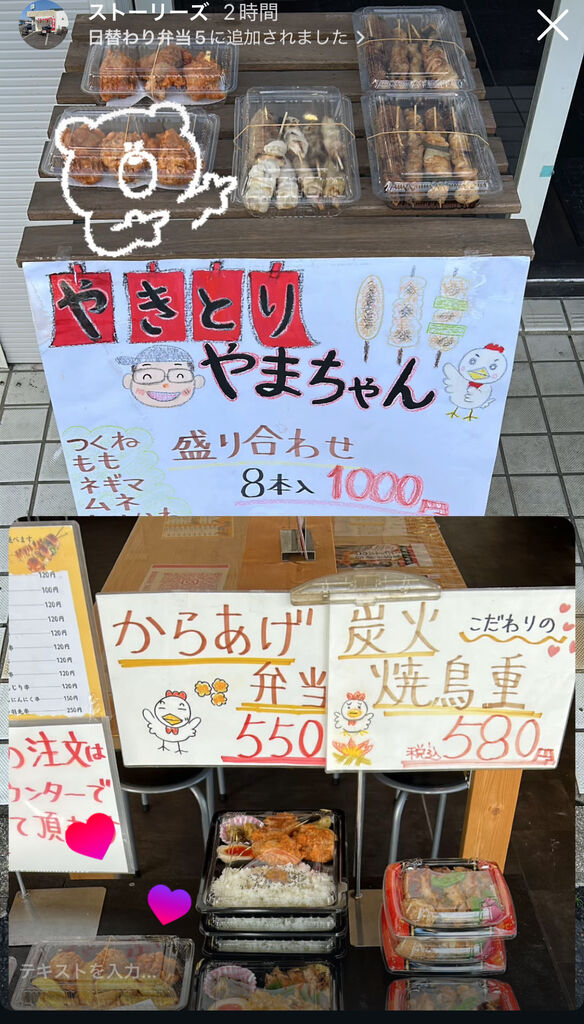 ストーリーズ 2時間
日替わり弁当5に追加されました
やきとり
やまちゃん
つくね
もも
ネギマ
ムネ
盛り合わせ
8本入 1000円
120円
100円
120円
120円
120円
120円
120円
120円
120円
150円
250円
からあげ
弁当
550
炭火
こだわりの
焼鳥重
税込580円
注文は
ウンターで
て頂
テキストを入力...